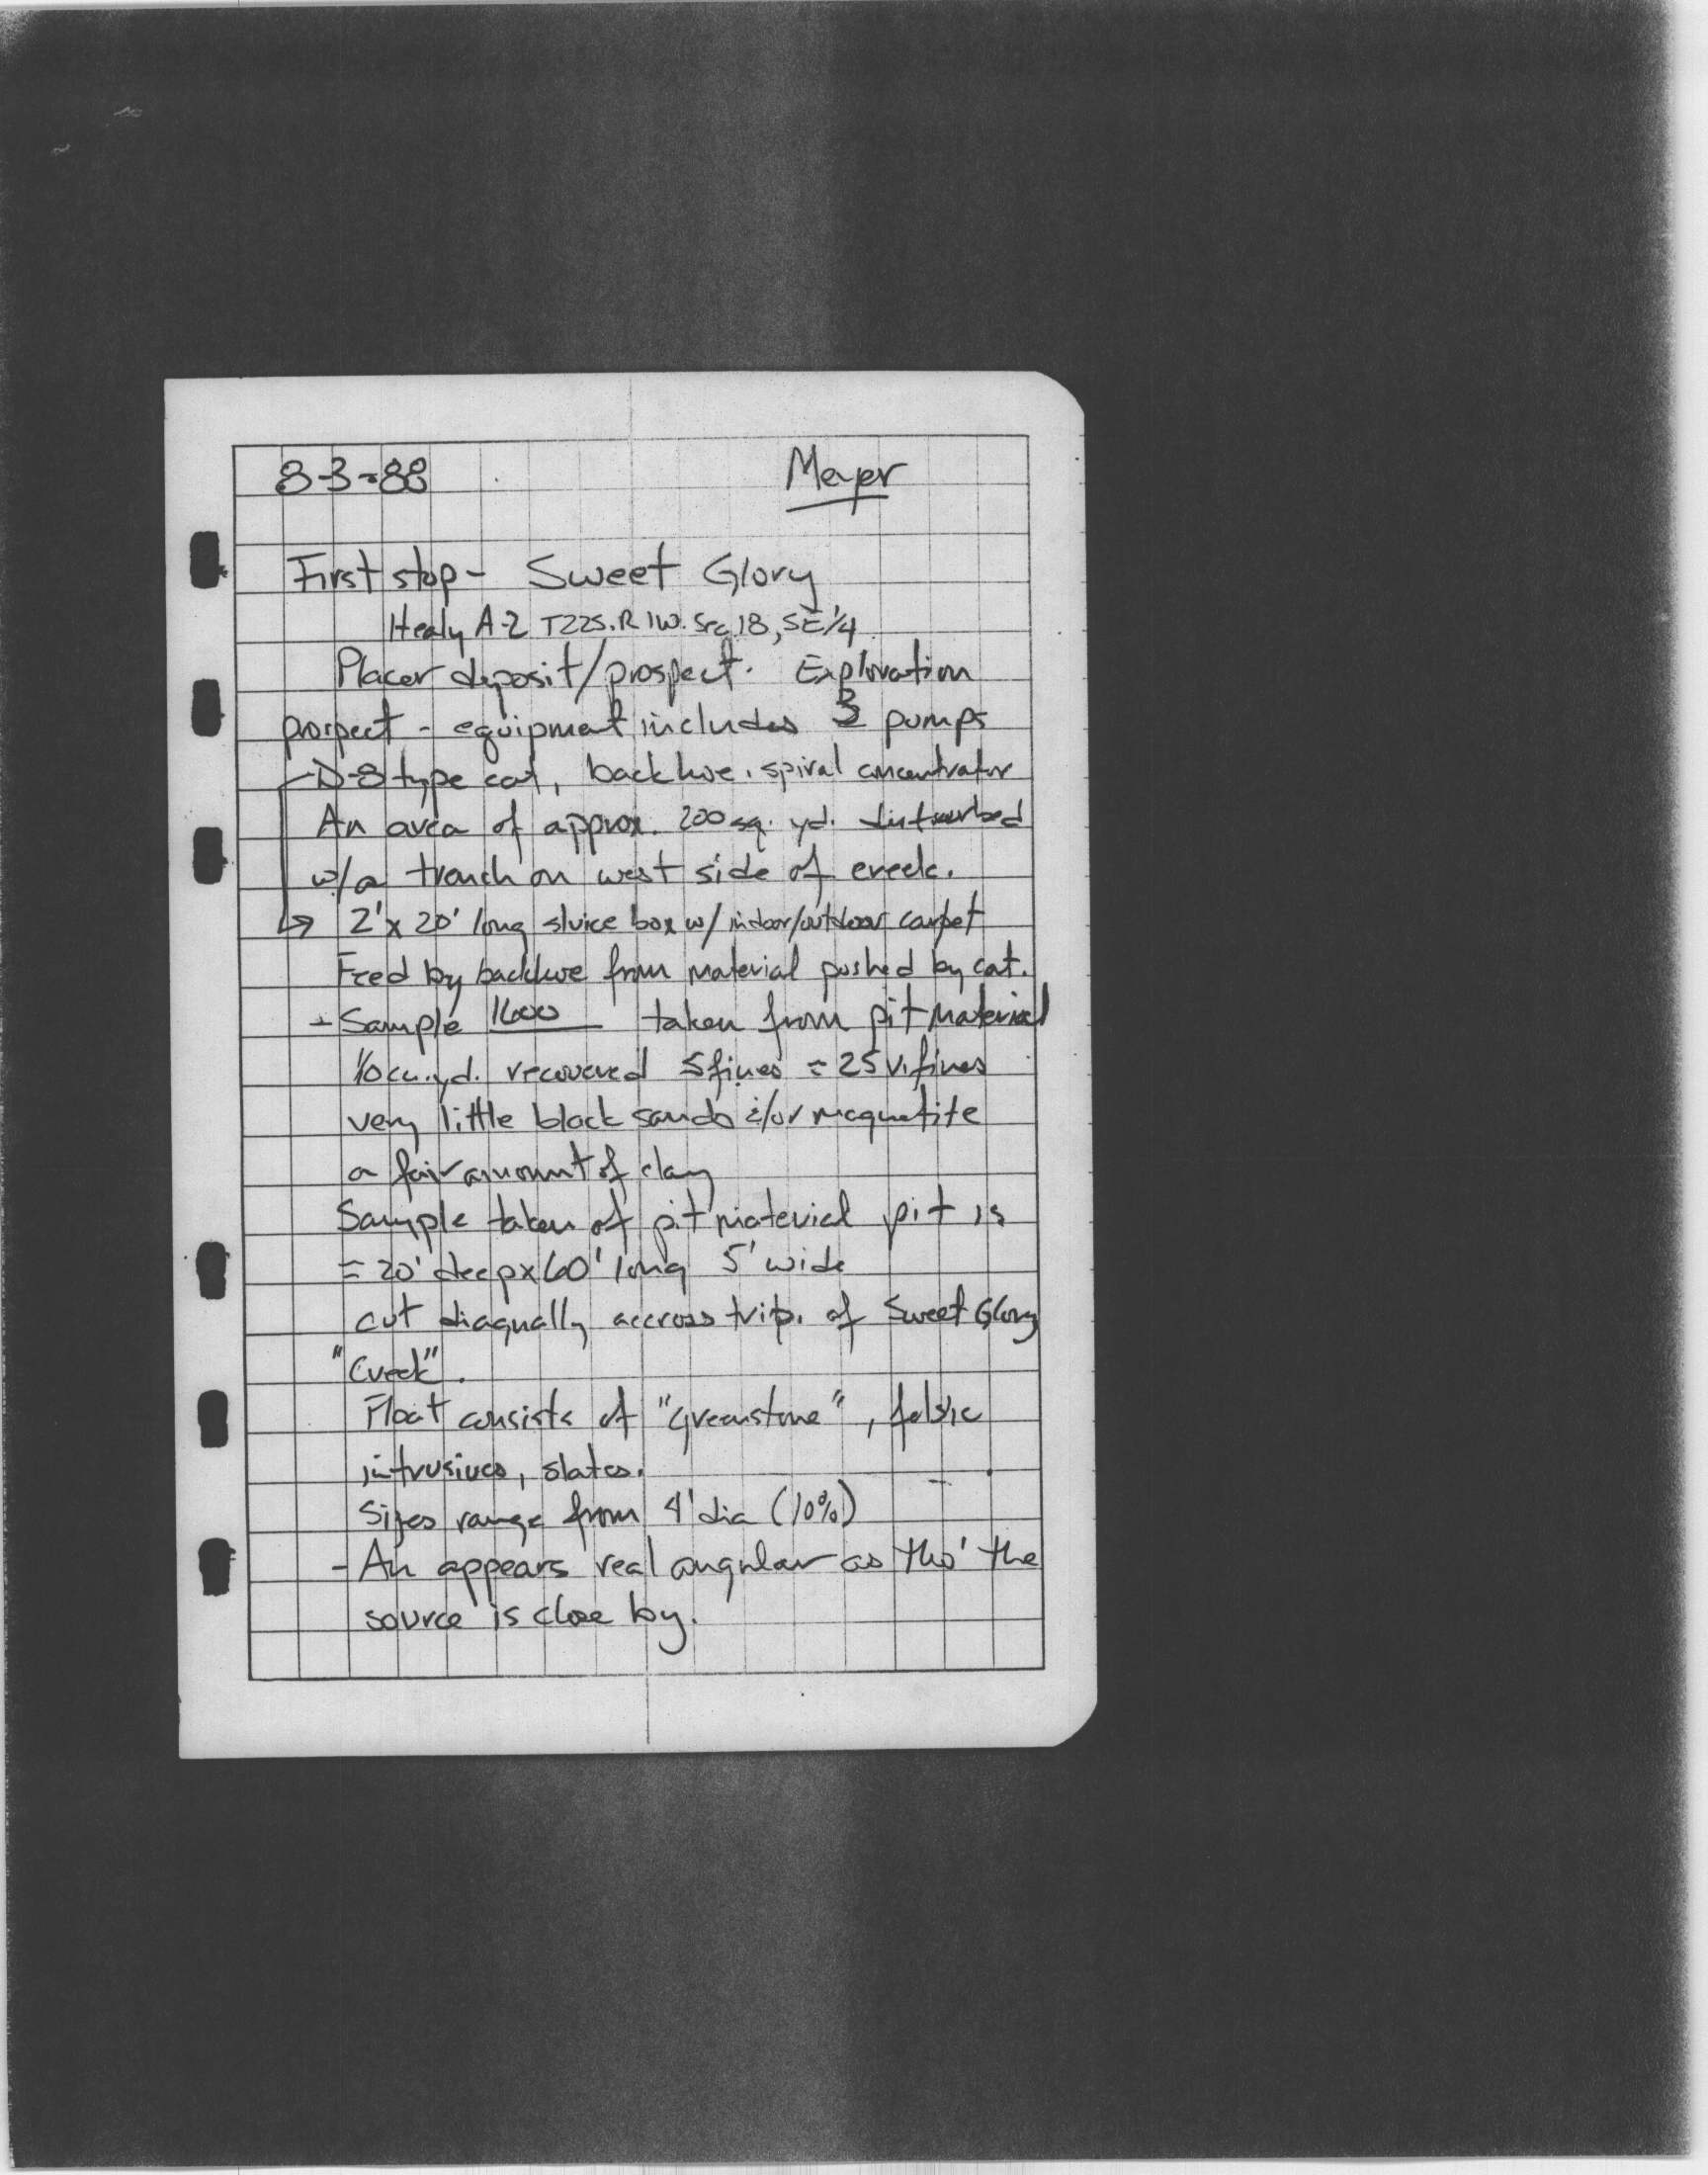 8-3-88 Meyer
First stop - Sweet Glory
Healy A-2 T22S. R1W. Sec 18, SE 1/4
Placer deposit/prospect. Exploration
prospect - equipment includes 3 pumps
- D-8 type cat, backhoe, spiral concentrator
An area of approx. 200 sq. yd. disturbed
w/a trench on west side of creek.
→ 2' x 20' long sluice box w/ indoor/outdoor carpet
Feed by backhoe from material pushed by cat.
- Sample 1600 taken from pit material
1/10 cu. yd. recovered 5 fines ≈ 25 v. fines
very little black sands &/or magnetite
a fair amount of clay
Sample taken of pit material pit is
≈ 20' deep x 60' long 5' wide
cut diagnally accross trib. of Sweet Glory
"Creek".
Float consists of "greenstone", felsic
intrusives, slates.
Sizes range from 4' dia (10%)
- Au appears real angular as tho' the
source is close by.